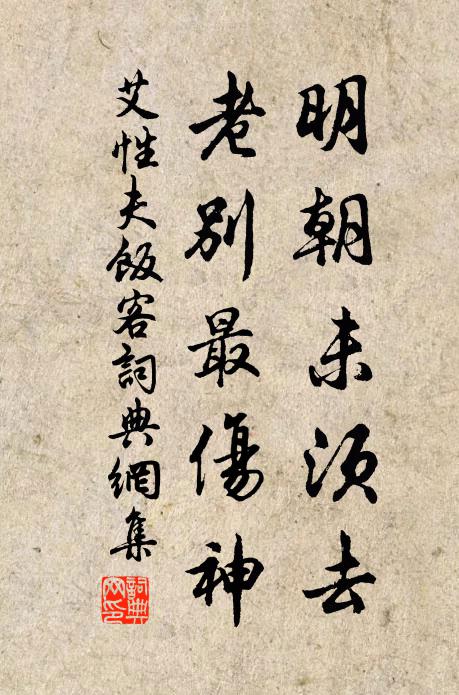 明朝未須去
老別最傷神
艾性夫飯客詞典網集
詞典網印